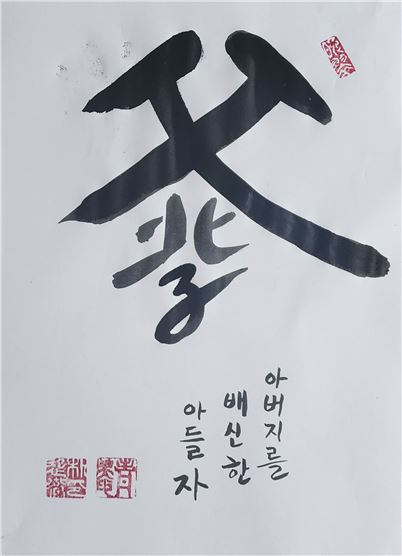 父
北
子
아버지를
배신한
아들 자